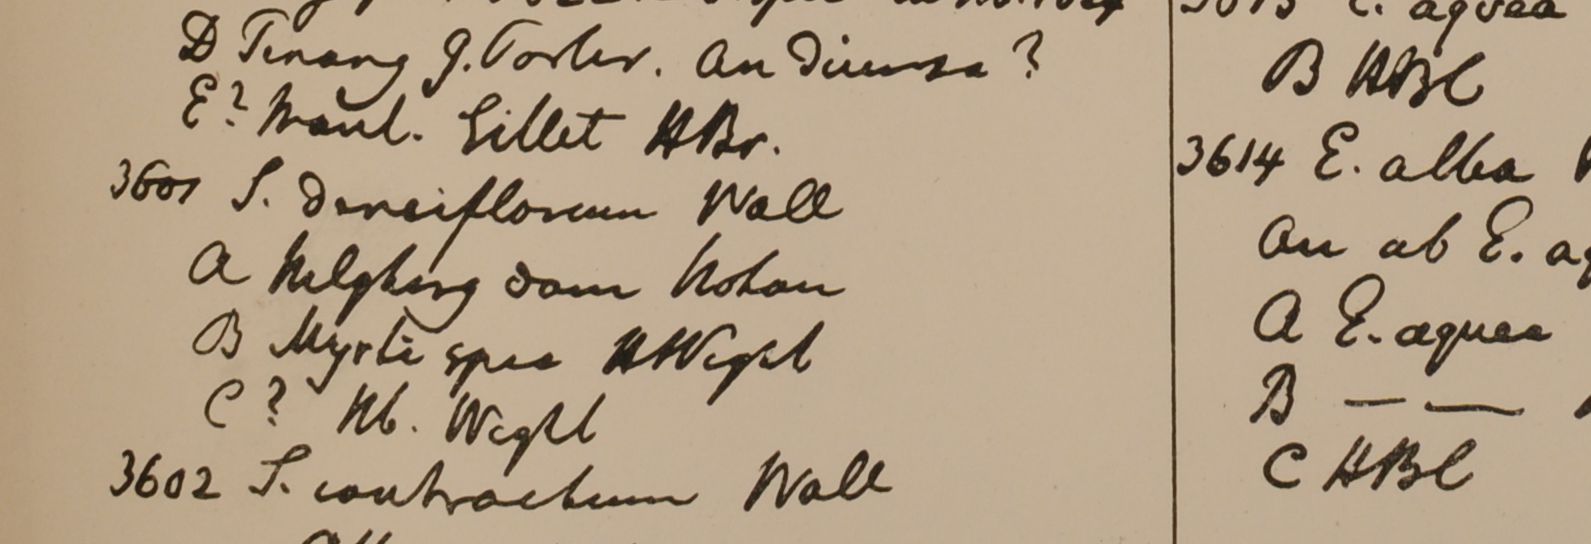 D Penang G. Porter. an diversa?
E? Maul. Gillet HBr.
3601 S. densiflorum Wall
A Nilghery dom Noton
B Myrti spec HWight
C? Hb. Wight
3602 S. contractum Wall
3613 E. aquea
B HBC
3614 E. alba
an ab E.
A E. aquea
B — —
C HBC